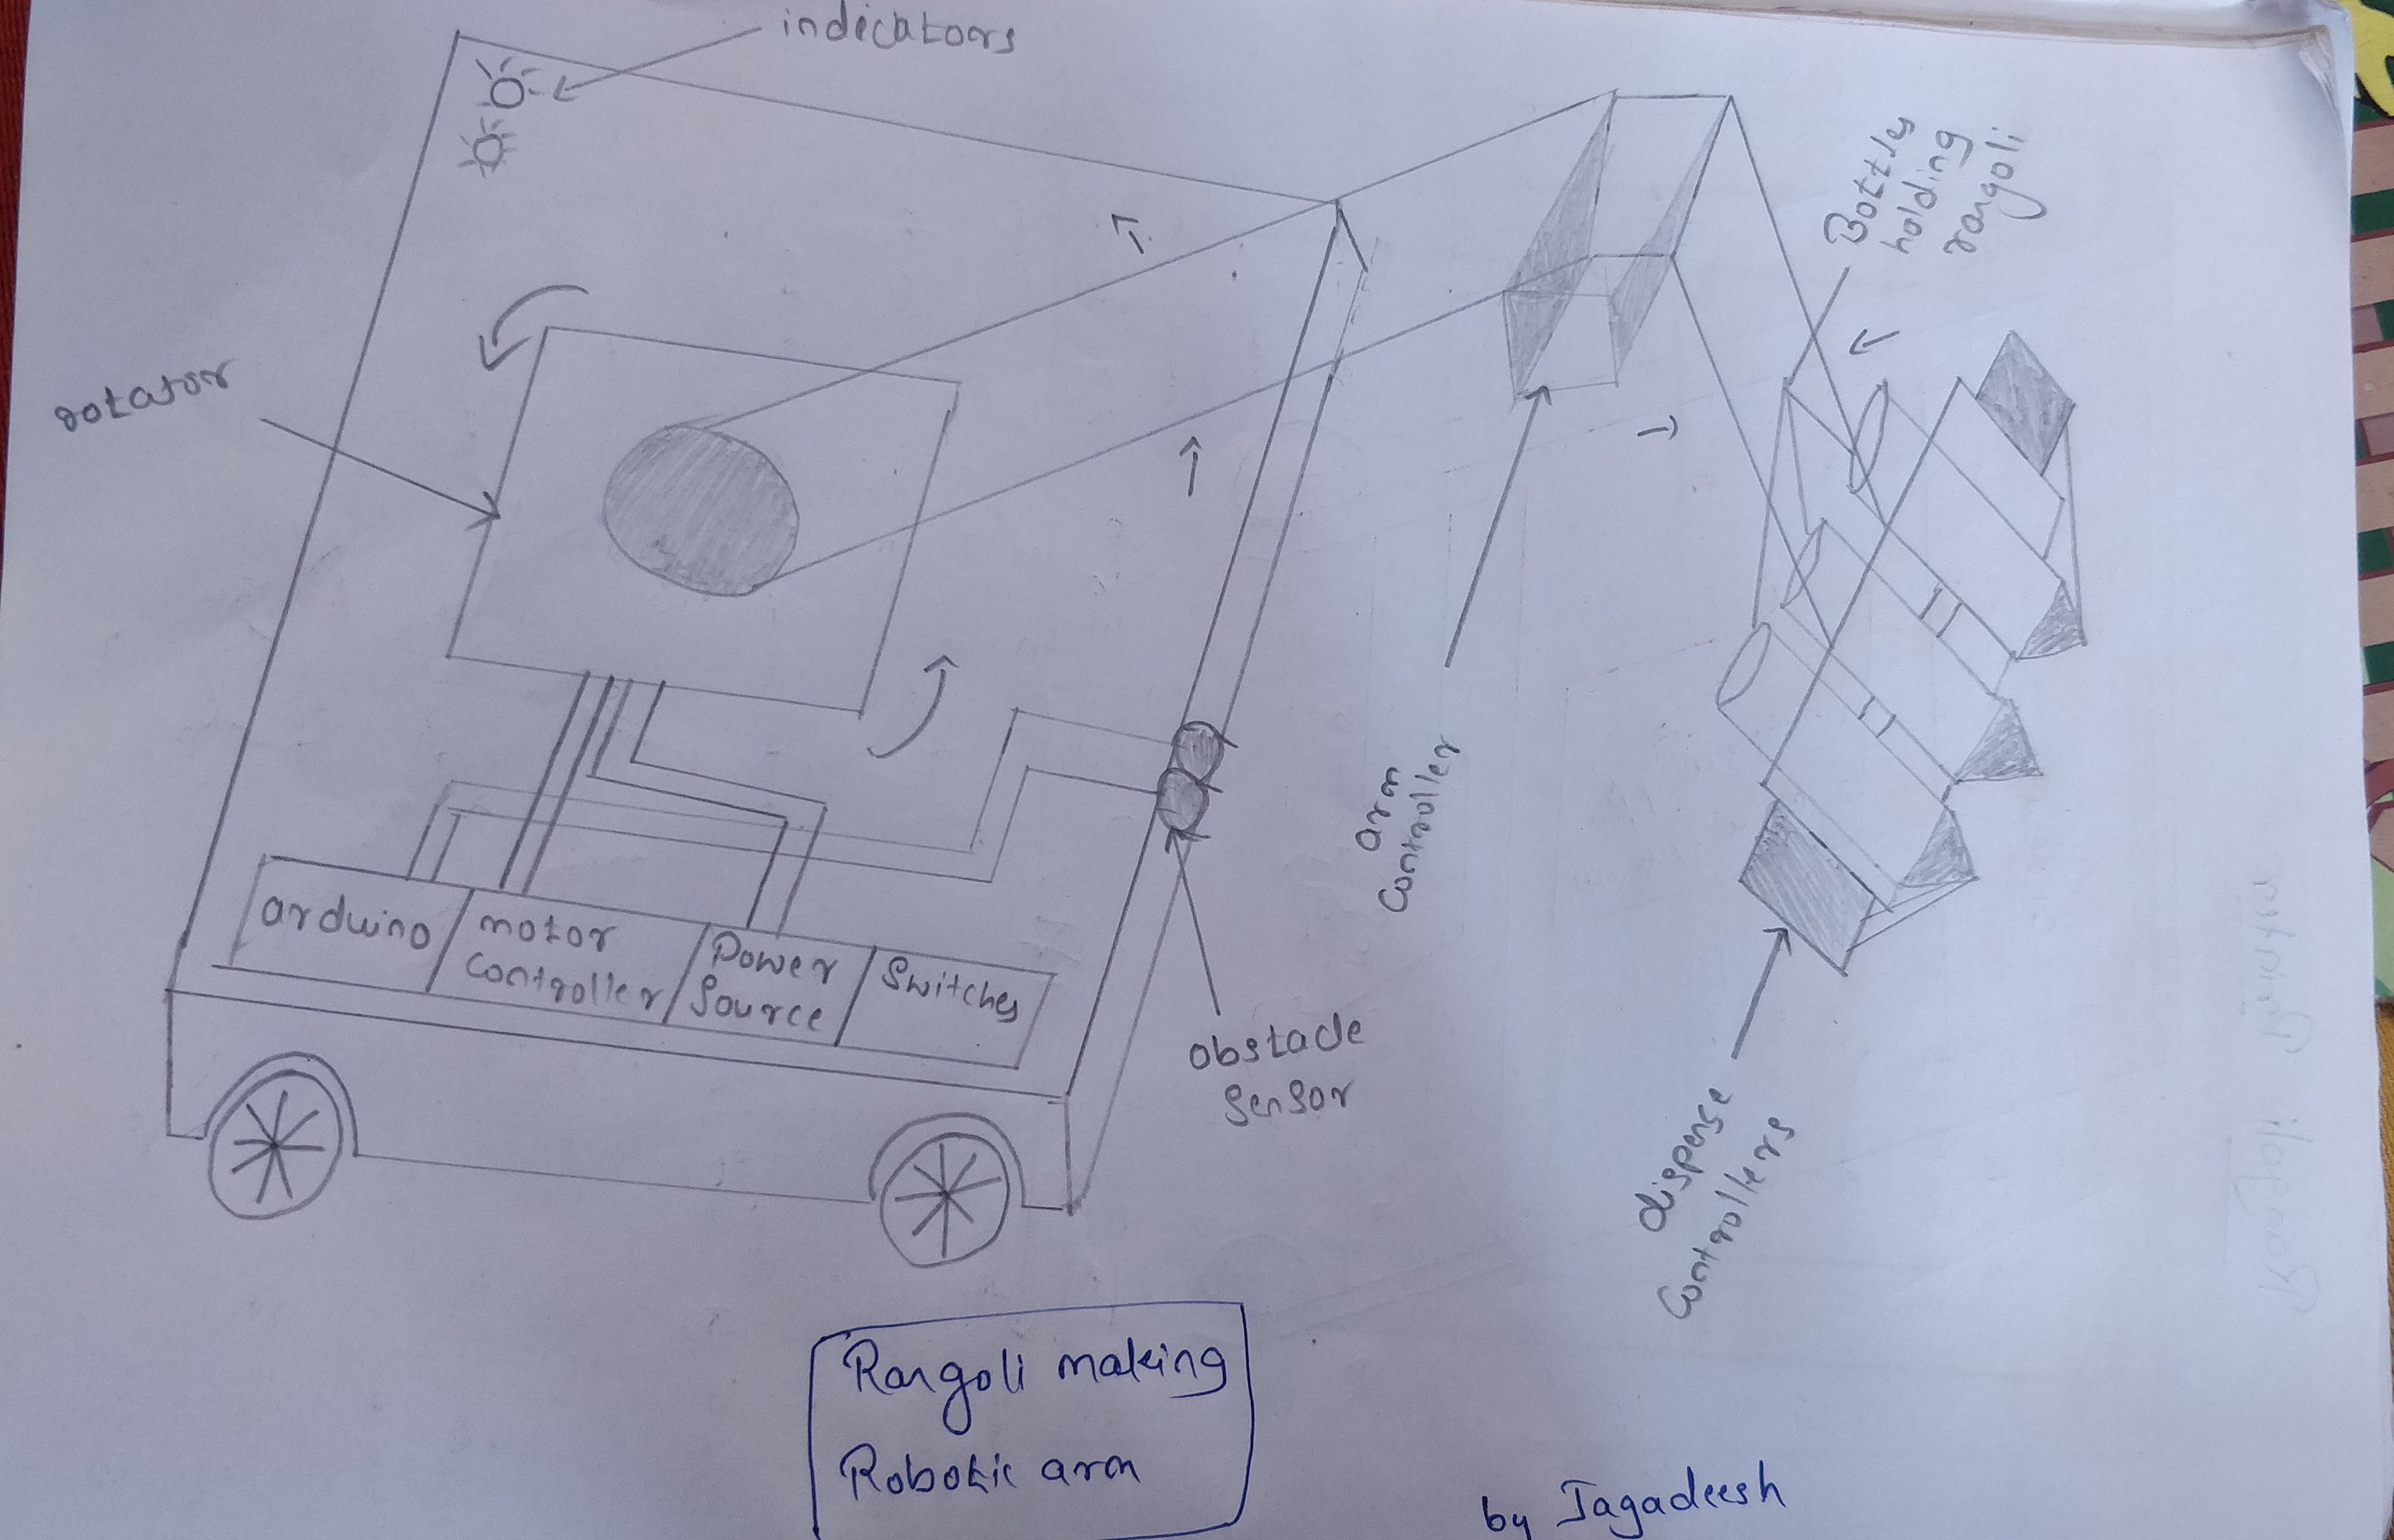 indicators
rotator
Bottles
holding
rangoli
arm
controller
arduino
motor
controller
Power
Source
Switches
obstacle
sensor
dispense
controllers
Rangoli making
Robotic arm
by Jagadeesh